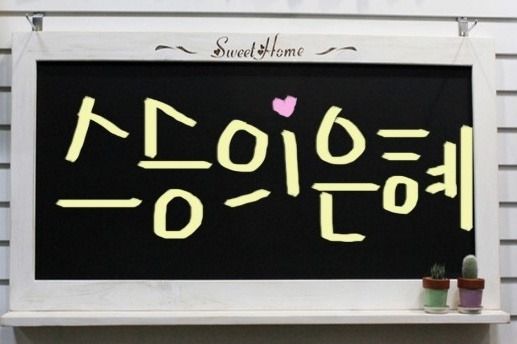 Sweet Home
스승의은혜